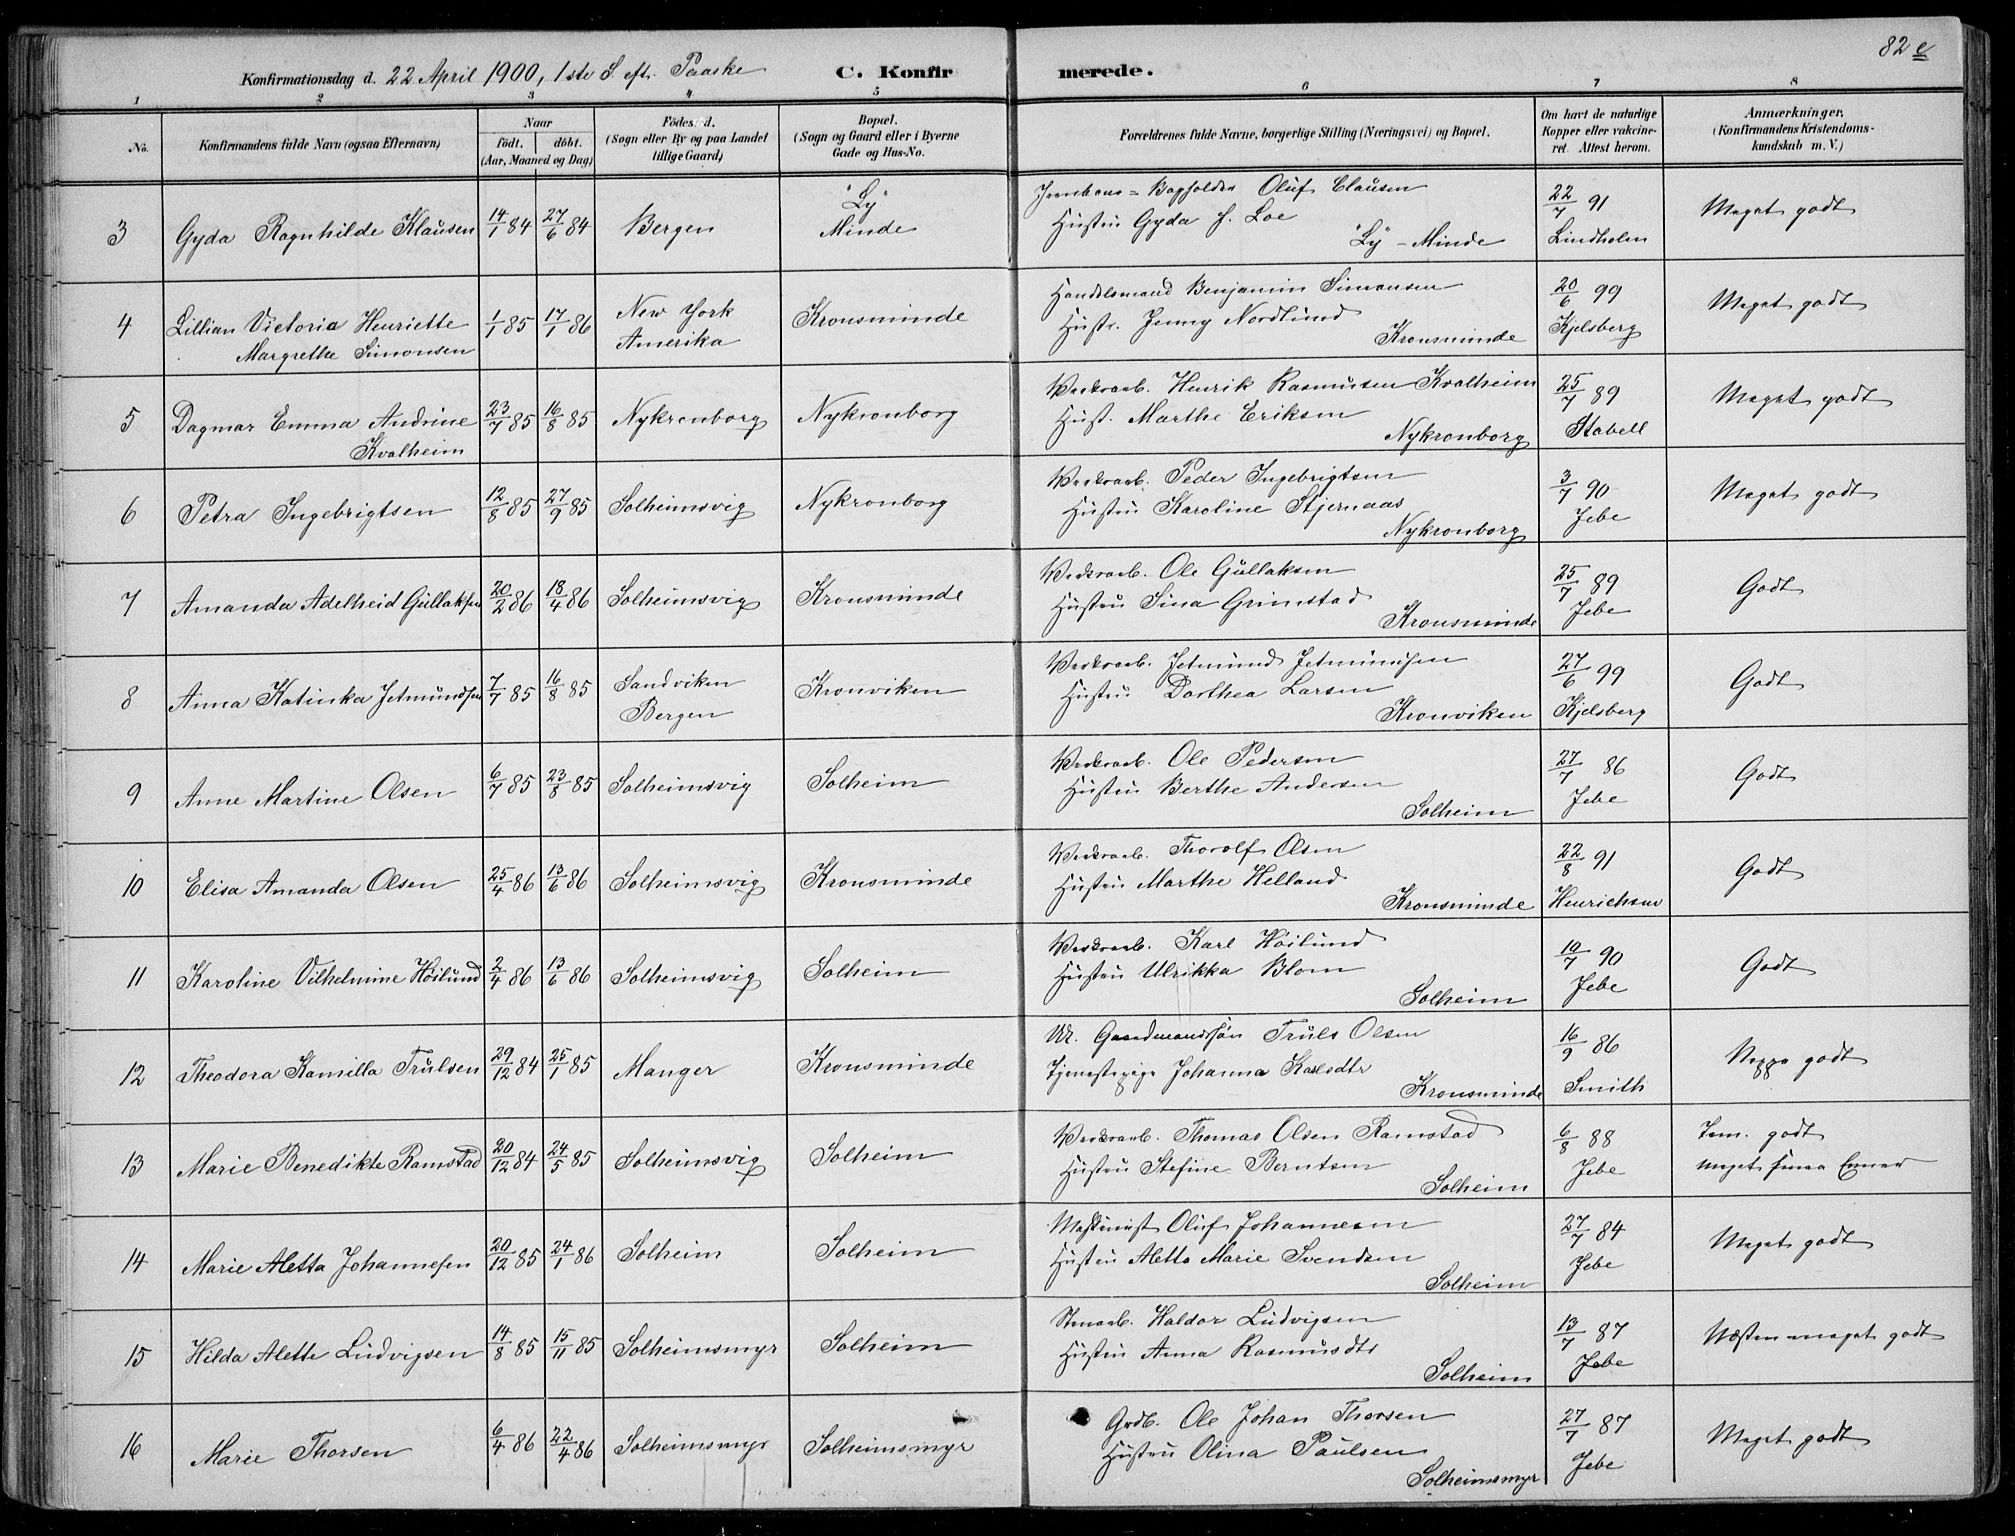 82 e
Konfirmationsdag d. 22 April 1900, 1ste S. eft. Paaske
C. Konfirmerede.
1 2 3 4 5 6 7 8
No.
Konfirmandens fulde Navn (ogsaa Efternavn)
Naar
født. døbt.
(Aar, Maaned og Dag)
Födested.
(Sogn eller By og paa Landet
tillige Gaard)
Bopæl.
(Sogn og Gaard eller i Byerne
Gade og Hus-No.
Forældrenes fulde Navne, borgerlige Stilling (Næringsvei) og Bopæl.
Om havt de naturlige
Kopper eller vakcine-
ret. Attest herom.
Anmærkninger.
(Konfirmandens Kristendoms-
kundskab m. V.)
3 Gyda Ragnhilde Klausen 14/1 84 27/6 84 Bergen "Ly"
Minde
Bogholder Oluf Clausen
Hustru Gyda f. Loe
"Ly" - Minde
22/7 91
Lindholm
Meget godt
4 Lillian Victoria Henriette
Margrethe Simonsen
1/1 85 17/1 86 New York
Amerika
Kronsminde
Handelsmand Benjamin Simonsen
Hustr. Jenny Nordlund
Kronsminde
20/6 99
Kjelsberg
Meget godt
5 Dagmar Emma Andrine
Kvalheim
23/7 85 16/8 85 Nykronborg Nykronborg
Værksarb. Henrik Rasmusen Kvalheim
Hust. Marthe Eriksen
Nykronborg
25/7 89
Stabell
Meget godt
6 Petra Ingebrigtsen 12/8 85 27/9 85 Solheimsvig Nykronborg
Værksarb. Peder Ingebrigtsen
Hustru Karoline Stjernaas
Nykronborg
3/7 90
Jebe
Meget godt
7 Amanda Adelheid Gullaksen 20/2 86 18/4 86 Solheimsvig Kronsminde
Værksarb. Ole Gullaksen
Hustru Sina Grimstad
Kronsminde
25/7 89
Jebe
Godt
8 Anna Katinka Jetmundsen 7/7 85 16/8 85 Sandviken
Bergen
Kronviken
Værksarb. Jetmund Jetmundsen
Hustru Dorthea Larsen
Kronviken
27/6 99
Kjelsberg
Godt
9 Anne Martine Olsen 6/7 85 23/8 85 Solheimsvig Solheim
Værksarb. Ole Pedersen
Hustru Berthe Andersen
Solheim
27/7 86
Jebe
Godt
10 Elisa Amanda Olsen 25/4 86 13/6 86 Solheimsvig Kronsminde
Værksarb. Thorolf Olsen
Hustru Marthe Helland
Kronsminde
22/8 91
Henrichsen
Godt
11 Karoline Vilhelmine Höilund 2/4 86 13/6 86 Solheimsvig Solheim
Værksarb. Karl Höilund
Hustru Ulrikka Blom
Solheim
10/7 90
Jebe
Godt
12 Theodora Kamilla Trulsen 29/12 84 25/1 85 Manger Kronsminde
Gaardmandssøn Truls Olsen
Tjenestepige Johanna Karlsdtr
Kronsminde
16/9 86
Smith
Neppe godt
13 Marie Benedikte Ramstad 20/12 84 24/5 85 Solheimsvig Solheim
Værksarb. Thomas Olsen Ramstad
Hustru Stefine Berntsen
Solheim
6/8 88
Jebe
Tem. godt
meget smaa Evner
14 Marie Aletta Johannesen 20/12 85 24/1 86 Solheim Solheim
Maskinist Oluf Johannesen
Hustru Aletta Marie Svendsen
Solheim
27/7 84
Jebe
Meget godt
15 Hilda Alette Ludvigsen 14/8 85 15/11 85 Solheimsmyr Solheim
Stenarb. Haldor Ludvigsen
Hustru Anna Rasmusdtr
Solheim
13/7 87
Jebe
Næsten meget godt
16 Marie Thorsen 6/4 86 22/4 86 Solheimsmyr Solheimsmyr
Grdb. Ole Johan Thorsen
Hustru Olina Paulsen
Solheimsmyr
27/7 87
Jebe
Meget godt